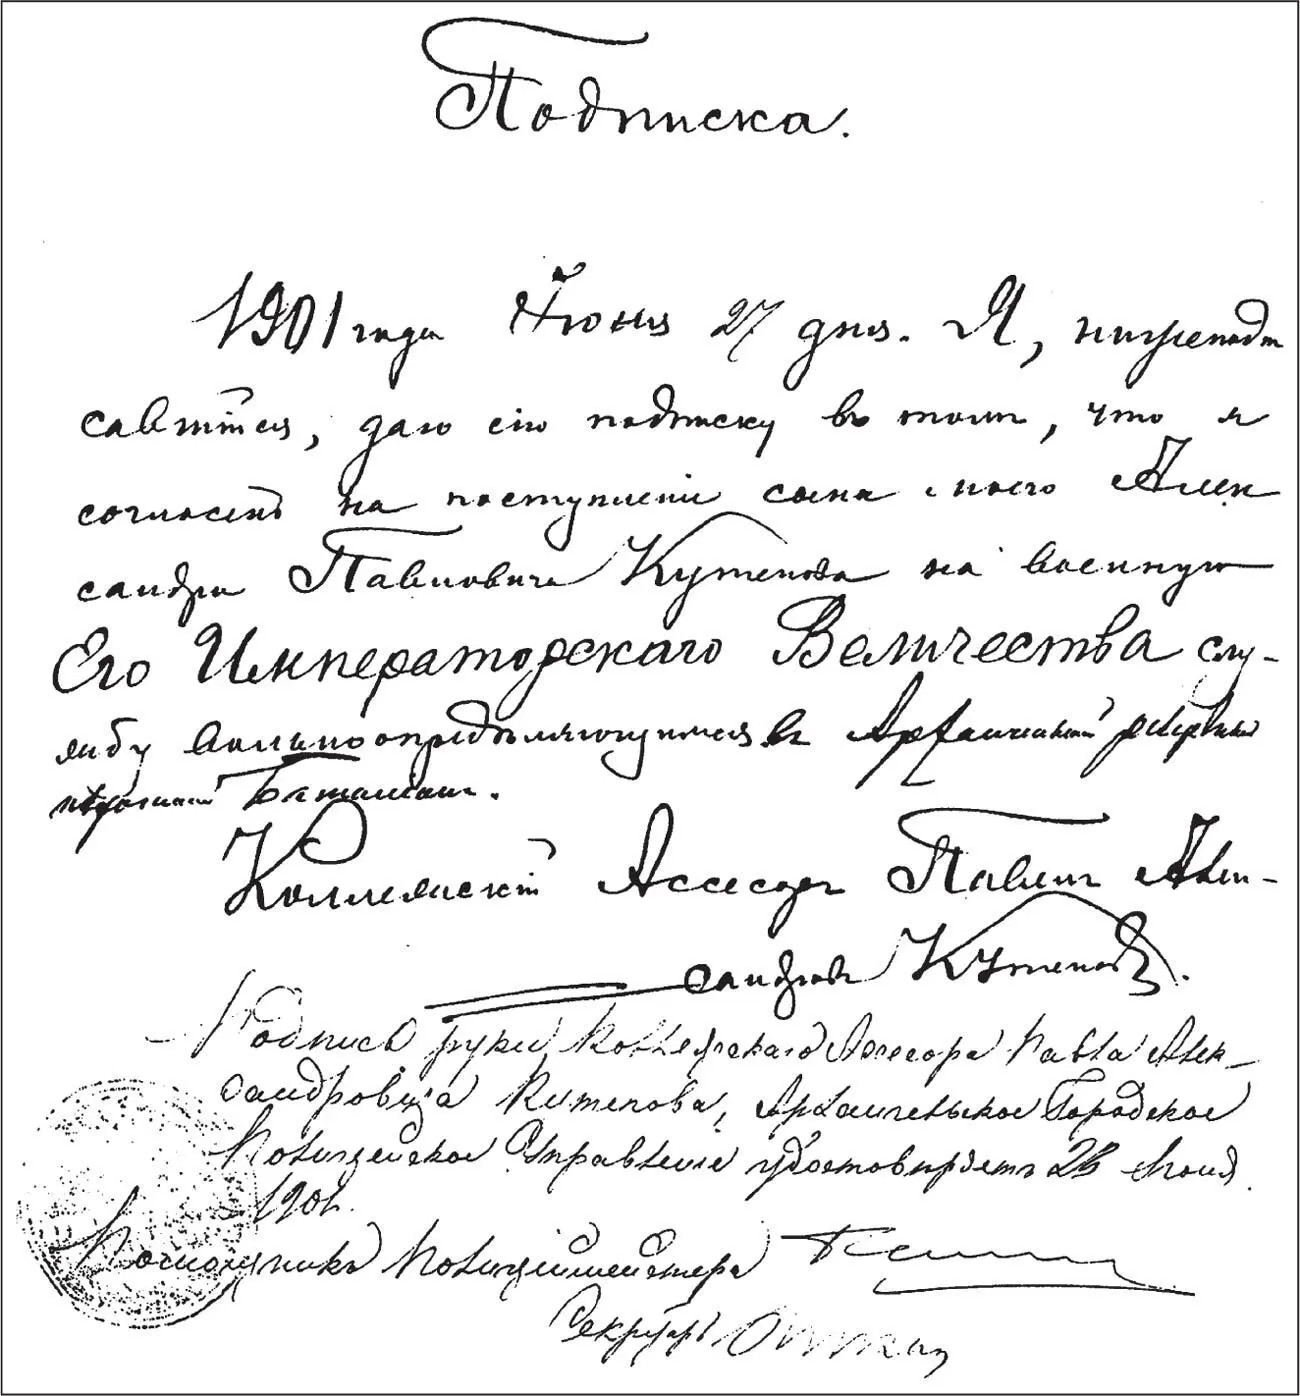 Подписка.
1901 года Iюня 27 дня. Я, нижеподпи
савшiйся, даю сiю подписку въ томъ, что я
согласенъ на поступленiе сына моего Алек
сандра Павловича Кутепова на военную
Его Императорскаго Величества слу-
жбу вольноопредѣляющимся въ Архангельскiй резервный
пѣхотный Баталiонъ.
Коллежскiй Ассесоръ Павелъ Алек-
сандровъ Кутеповъ.
Подпись руки Коллежскаго Ассесора Павла Алек-
сандровича Кутепова, Архангельское Городское
Полицейское Управленiе удостовѣряетъ 28 Iюня
1901г.
Помощникъ Полицiймейстера
Секретарь